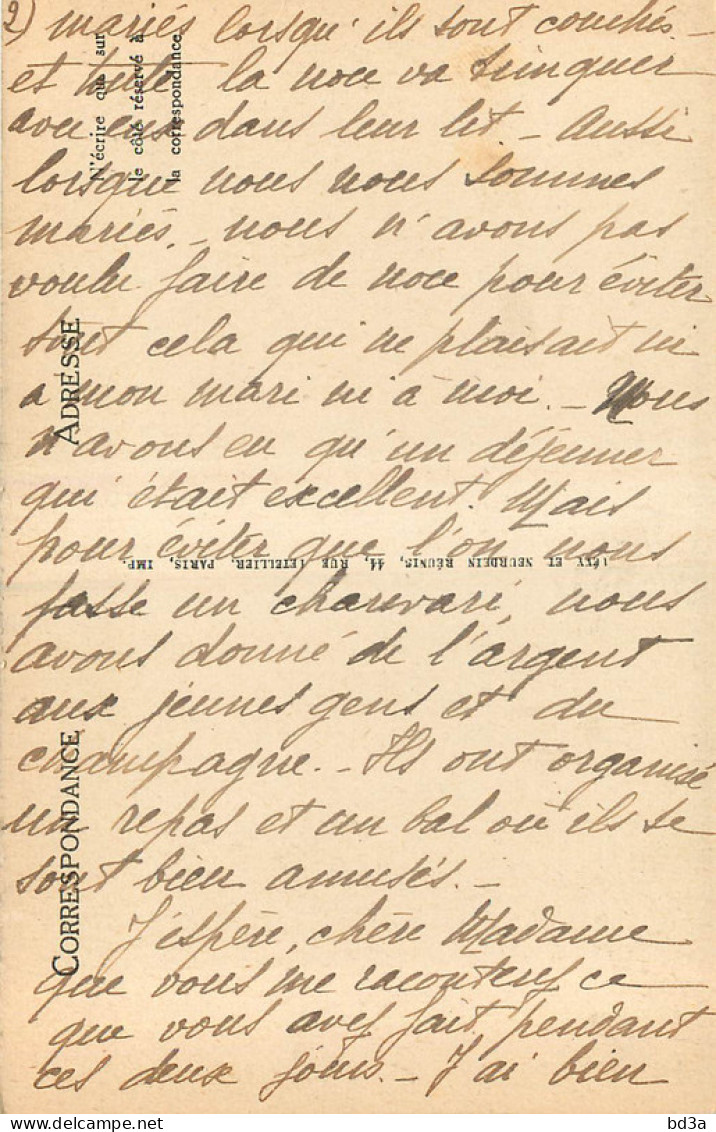 2) mariés lorsqu'ils sont couchés -
et toute la noce va trinquer
avec eux dans leur lit - Aussi
lorsque nous nous sommes
mariés, - nous n'avons pas
voulu faire de noce pour éviter
tout cela qui ne plaisait ni
a mon mari ni à moi. - Nous
n'avons eu qu'un déjeuner
qui était excellent. Mais
pour éviter que l'on nous
fasse un charivari, nous
avons donné de l'argent
aux jeunes gens et du
champagne. - Ils ont organisé
un repas et un bal où ils se
sont bien amusés. -
J'espère, chère Madame
que vous me raconterez ce
que vous avez fait pendant
ces deux jours. - J'ai bien
N'écrire que sur
le côté réservé à
la correspondance
ADRESSE
CORRESPONDANCE
LÉVY ET NEURDEIN RÉUNIS, 44, RUE LETELLIER, PARIS, IMP.
bd3a